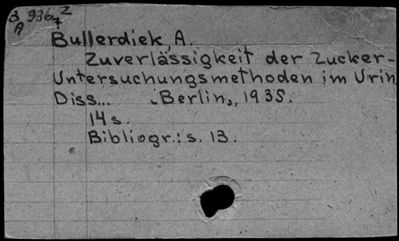 B 936 Z
A 4
Bullerdiek, A.
Zuverlässigkeit der Zucker-
Untersuchungsmethoden im Urin.
Diss... Berlin, 1935.
14 s.
Bibliogr.: s. 13.